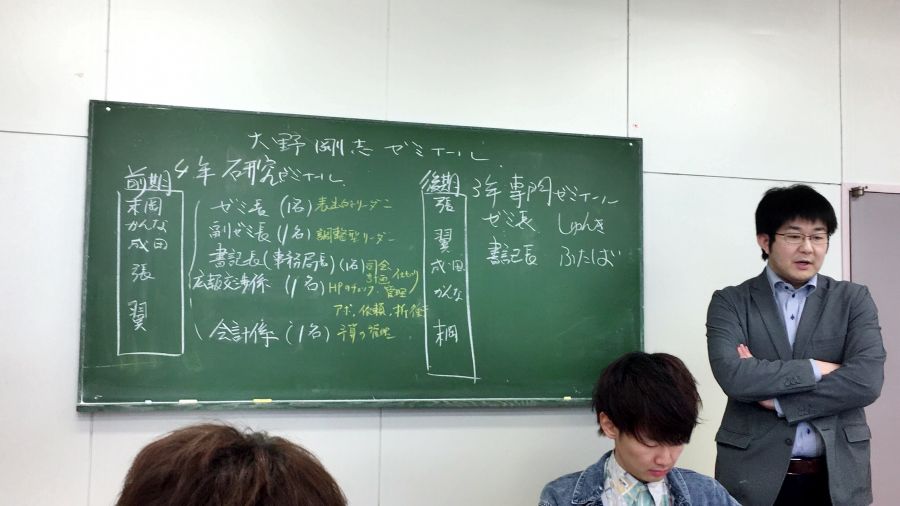 大野剛志 ゼミナール
前期
4年 研究ゼミナール
かんな
成田
張
翼
ゼミ長 (1名) 表出的リーダー
副ゼミ長 (1名) 調整型リーダー
書記長 (事務局長) (1名) 司会 計画
広報交渉係 (1名) HPのチェック、管理
アポ、依頼、折衝
会計係 (1名) 予算の管理
後期
張
翼
成田
かんな
桐
3年 専門ゼミナール
ゼミ長 しゅんき
書記長 ふたば